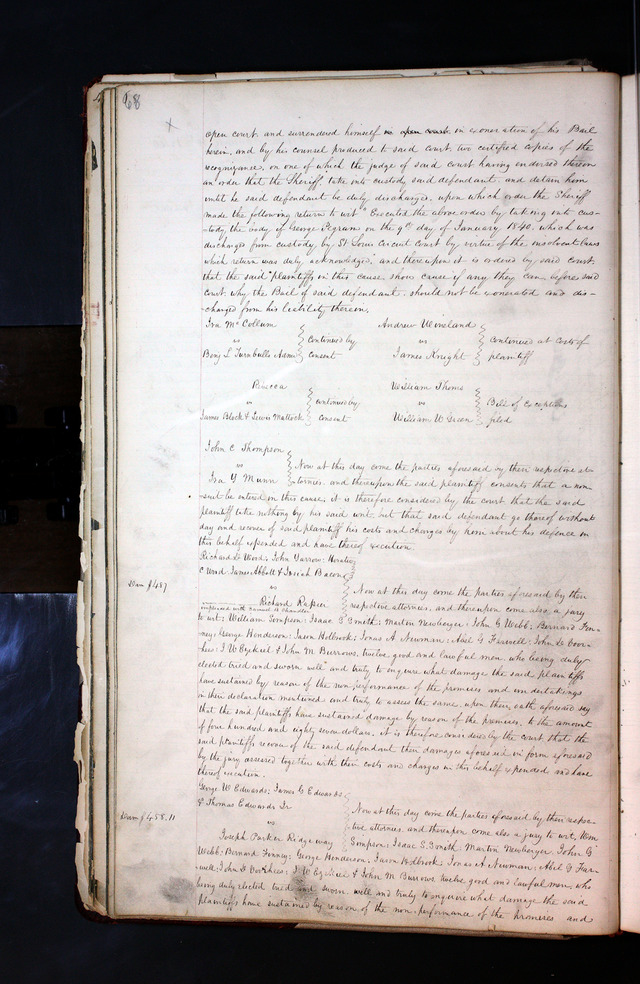 68
open court and surrendered himself in open court in exoneration of his Bail
herein, and by his counsel produced to said court two certified copies of the
recognizance, on one of which the judge of said court having endorsed thereon
an order that the Sheriff "take into custody said defendant and detain him
until he said defendant be duly discharged, upon which order the Sheriff
made the following return to wit "Executed the above order by taking into cus-
-tody the body of George Pegram on the 9th day of January 1840, which was
discharged from custody by St Louis Circuit Court by virtue of the insolvent laws
which return was duly acknowledged," and thereupon it is ordered by said court
that the said plaintiffs in this cause show cause if any they can before said
court why the Bail of said defendant should not be exonerated and dis-
-charged from his liability therein.
Ira Mc Collum
vs
Benj L Turnbulls Admr
continued by
consent
Andrew Wineland
vs
James Knight
continued at costs of
plaintiff
Bucca
vs
James Block & Lewis Matlock
continued by
consent
William Thoms
vs
William W Green
Bill of Exceptions
filed
John C Thompson
vs
Ira Y Munn
Now at this day come the parties aforesaid by their respective at-
-tornies, and thereupon the said plaintiff consents that a non
suit be entered in this cause, it is therefore considered by the court that the said
plaintiff take nothing by his said writ but that said defendant go thereof without
day and recover of said plaintiff his costs and charges by him about his defence in
this behalf expended and have thereof execution.
Richard D Word; John Yarrow; Horatio
C Word James Abbott & Josiah Bacon
Dam $487
vs
Richard Rapier
impleaded with Samuel H Chandler
Now at this day come the parties aforesaid by their
respective attornies, and thereupon come also a jury
to wit: William Sompson; Isaac S Smith; Martin Newberger; John G Webb; Bernard Fin-
ney; George Henderson; Jason Holbrook; Jonas A Newman; Abil G Farwell; John D Voor-
hies; I W Ezekiel & John M Burrows, twelve good and lawful men who being duly
elected tried and sworn well and truly to enquire what damage the said plaintiffs
have sustained by reason of the non performance of the promises and undertakings
in their declaration mentioned and truly to assess the same, upon their oath aforesaid say
that the said plaintiffs have sustained damage by reason of the premises, to the amount
of four hundred and eighty seven dollars. it is therefore considered by the court that the
said plaintiffs recover of the said defendant their damages aforesaid in form aforesaid
by the jury assessed together with their costs and charges in this behalf expended and have
thereof execution.
George W Edwards; James C Edwards,
& Thomas Edwards Jr
Dam $458.11
vs
Joseph Parker Ridgeway
Now at this day come the parties aforesaid by their respec-
-tive attornies, and thereupon come also a jury to wit, Wm
Sompson; Isaac S. Smith; Martin Newberger; John G
Webb; Bernard Finney; George Henderson; Jason Holbrook; Jonas A Newman; Abil G Farr-
-well; John D Voorhies; I W Ezekiel & John M Burrows, twelve good and lawful men, who
being duly elected tried and sworn well and truly to enquire what damage the said
plaintiffs have sustained by reason of the non-performance of the promises and